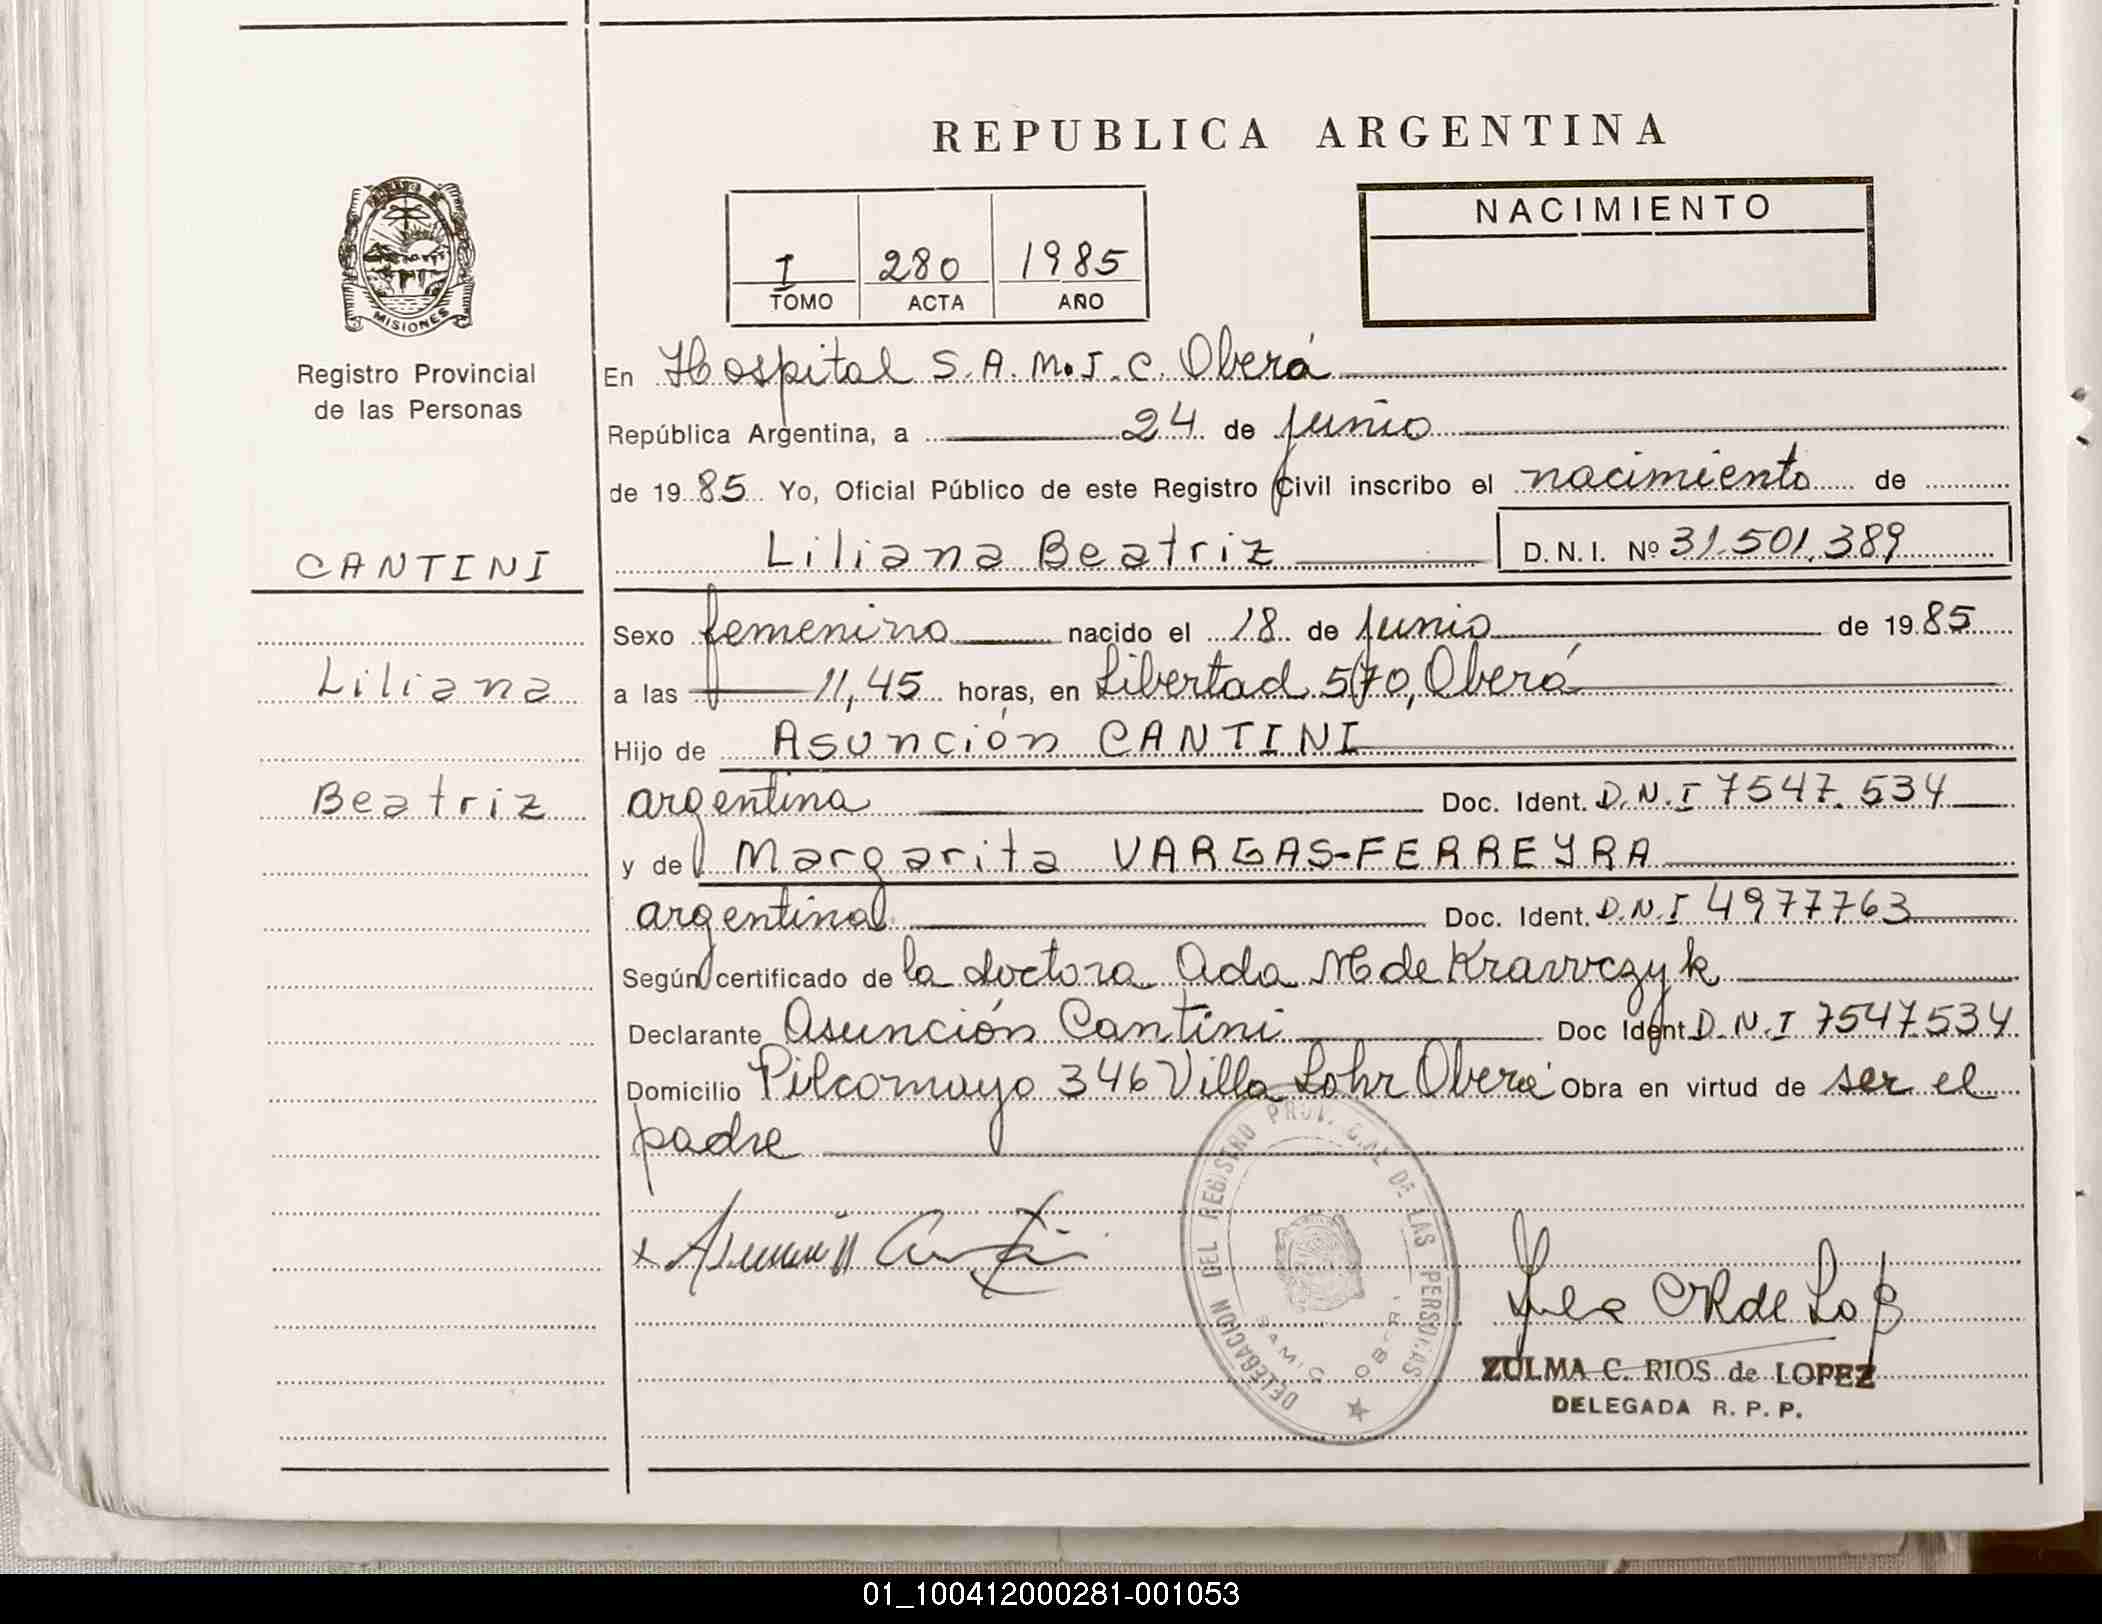 REPUBLICA ARGENTINA
NACIMIENTO
I 280 1985
TOMO ACTA AÑO
MISIONES
Registro Provincial
de las Personas
En Hospital S.A.M.I.C. Oberá
República Argentina, a 24 de junio
de 1985 Yo, Oficial Público de este Registro Civil inscribo el nacimiento de
CANTINI
Liliana Beatriz D.N.I. Nº 31.501.389
Sexo femenino nacido el 18 de junio de 1985
Liliana
a las 11,45 horas, en Libertad 570, Oberá
Hijo de Asunción CANTINI
Beatriz
argentina Doc. Ident. D.N.I 7547.534
y de Margarita VARGAS-FERREYRA
argentina Doc. Ident. D.N.I 4977763
Según certificado de la doctora Ada M de Krawczyk
Declarante Asunción Cantini Doc Ident D.N.I 7547534
Domicilio Pilcomayo 346 Villa Lohr Oberá Obra en virtud de ser el
padre
x Asunción Cantini
DELEGACION DEL REGISTRO PROV. DE LAS PERSONAS
SAMIC
ZULMA C. RIOS de LOPEZ
DELEGADA R. P. P.
01_100412000281-001053